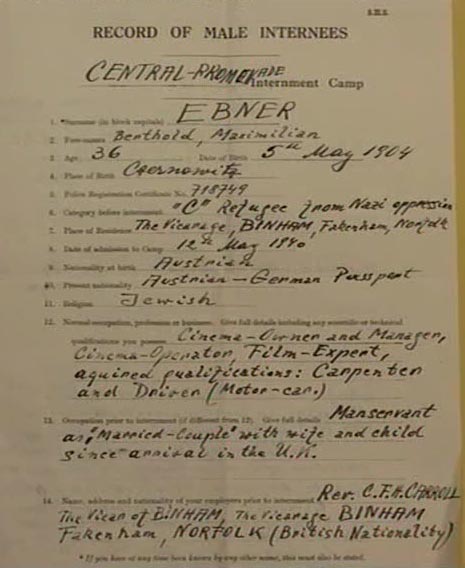 S.H.S.
RECORD OF MALE INTERNEES
CENTRAL-PROMENADE Internment Camp
1. *Surname (in block capitals) EBNER
2. Forenames Berthold, Maximilian
3. Age 36 Date of Birth 5th May 1904
4. Place of Birth Czernowitz
5. Police Registration Certificate No. 718749
6. Category before internment "C" Refugee from Nazi oppression
7. Place of Residence The Vicarage, BINHAM, Fakenham, Norfolk
8. Date of admission to Camp 12th May 1940
9. Nationality at birth Austrian
10. Present nationality Austrian-German Passport
11. Religion Jewish
12. Normal occupation, profession or business. Give full details including any scientific or technical
qualifications you possess Cinema-Owner and Manager,
Cinema-Operator, Film-Expert,
aquired qualifications: Carpenter
and Driver (Motor-car.)
13. Occupation prior to internment (if different from 12). Give full details Manservant
as "Married-Couple" with wife and child
since arrival in the U.K.
14. Name, address and nationality of your employers prior to internment Rev. C.F.H. CARROLL
The Vicar of BINHAM, The Vicarage BINHAM
Fakenham, NORFOLK (British Nationality)
* If you have at any time been known by any other name, this must also be stated.